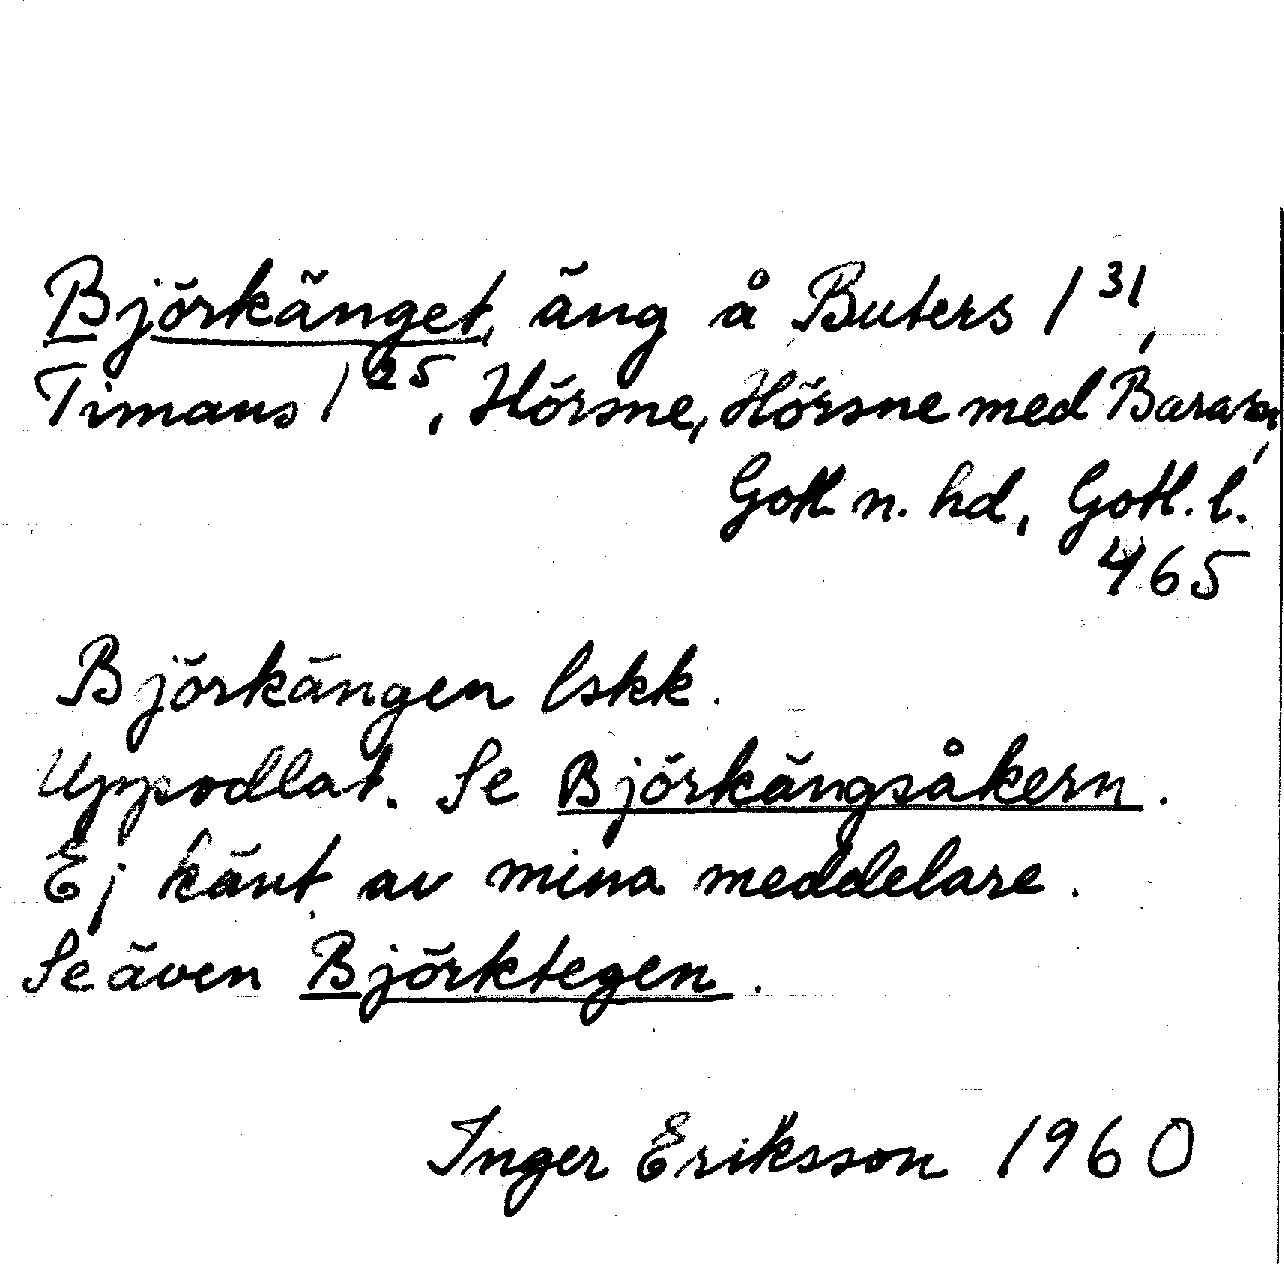 Björkänget, äng å Buters 1³¹,
Timans 1²⁵, Hörsne, Hörsne med Bara sn,
Gotl. n. hd, Gotl. l.
465
Björkängen lskk.
Uppodlat. Se Björkängsåkern.
Ej känt av mina meddelare.
Se även Björktegen.
Inger Eriksson 1960